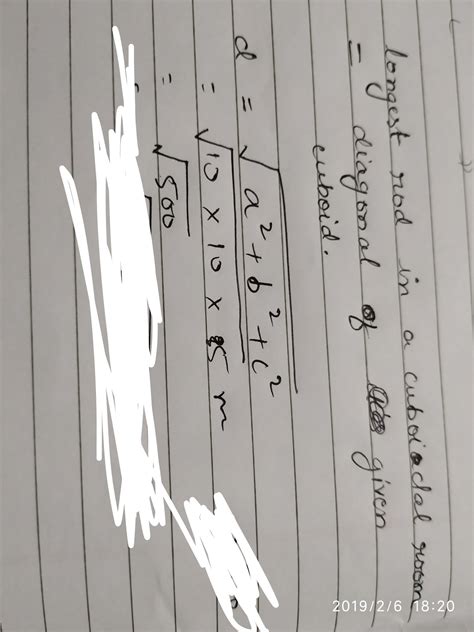 longest rod in a cuboidal room
= diagonal of given
cuboid.
d = √a²+b²+c²
= √10 × 10 × 5 m
= √500
2019/2/6 18:20